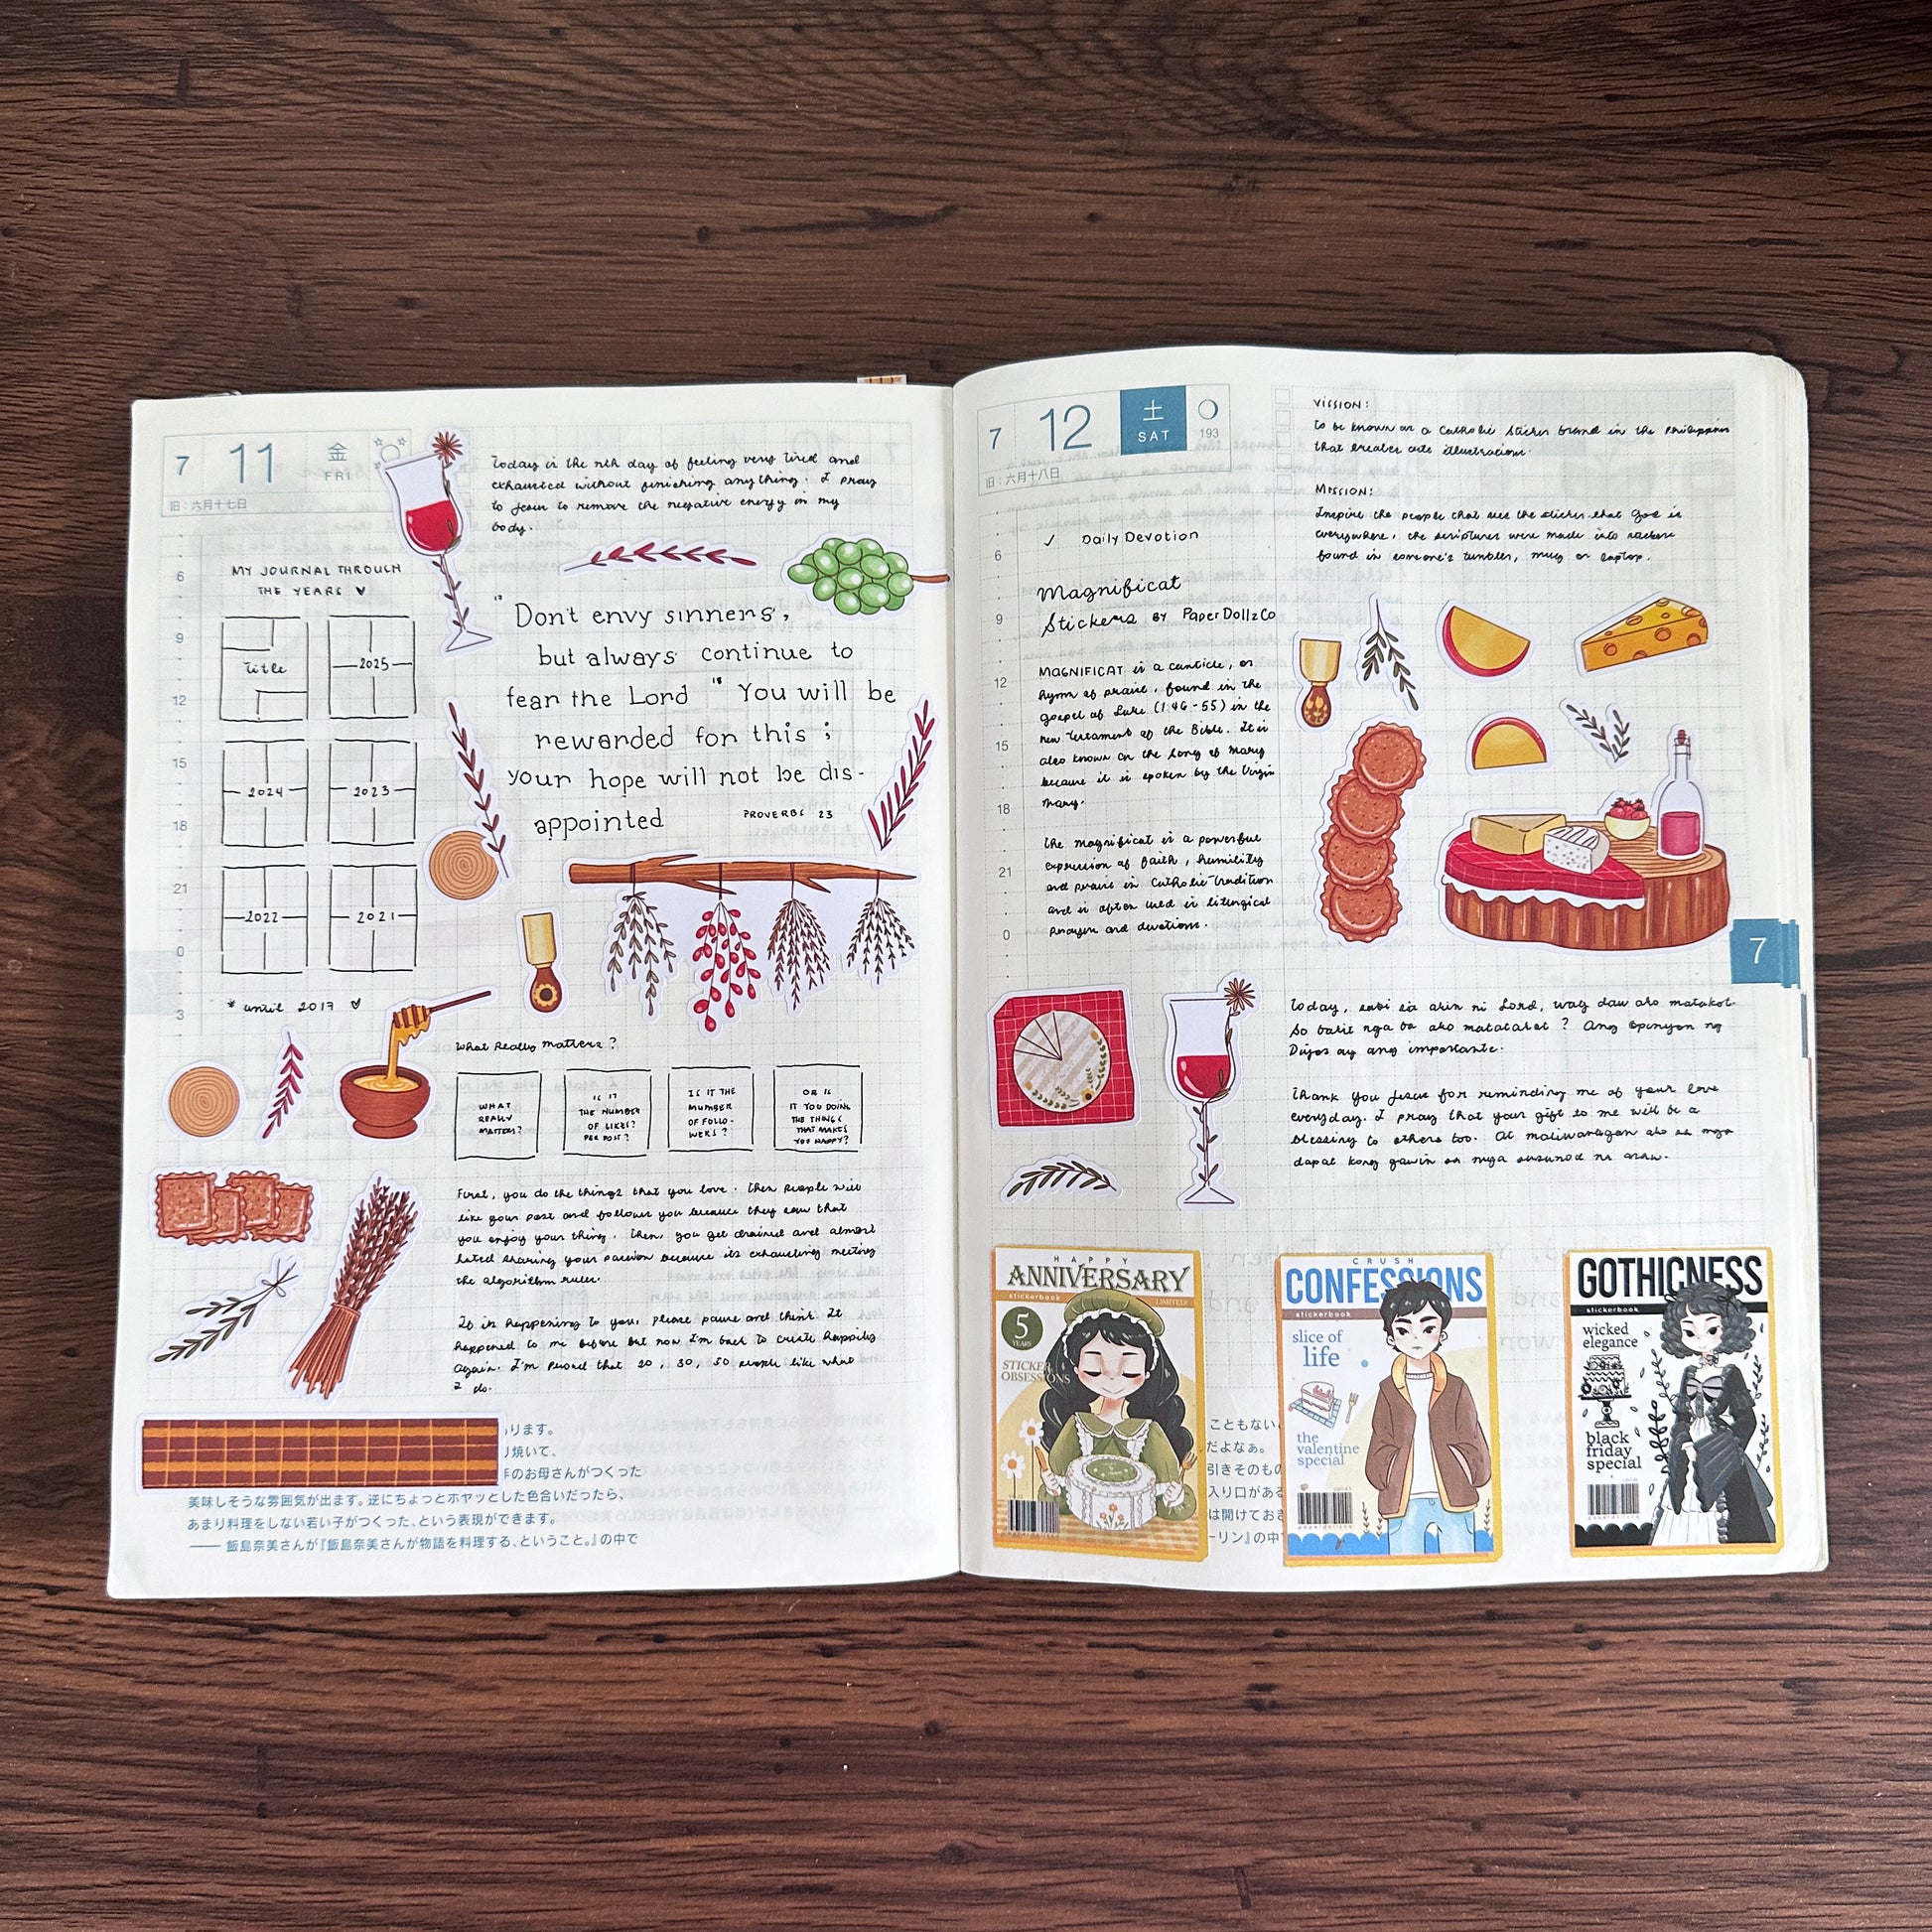 7 11 金 FRI
旧:六月十七日
Today is the nth day of feeling very tired and
exhausted without finishing anything. I pray
to Jesus to remove the negative energy in my
body.
6
9
12
15
18
21
0
3
MY JOURNAL THROUGH
THE YEARS
Title
2025
2024
2023
2022
2021
* until 2017
"Don't envy sinners,
but always continue to
fear the Lord" You will be
rewarded for this ;
your hope will not be dis-
appointed
PROVERBS 23
What Really matters?
WHAT
REALLY
MATTERS?
IS IT
THE NUMBER
OF LIKES?
PER POST?
IS IT THE
NUMBER
OF FOLLO-
WERS?
OR IS
IT YOU DOING
THE THINGS
THAT MAKES
YOU HAPPY?
First, you do the things that you love. Then people will
like your post and follower you because they saw that
you enjoy your thing. Then, you get drained and almost
hated sharing your passion because its exhausting meeting
the algorithm rules.
If is happening to you, please pause and think. It
happened to me before but now I'm back to create happily
again. I'm proud that 20, 30, 50 people like what
I do.
ります。
り焼いて、
のお母さんがつくった
美味しそうな雰囲気が出ます。逆にちょっとホヤッとした色合いだったら、
あまり料理をしない若い子がつくった、という表現ができます。
── 飯島奈美さんが『飯島奈美さんが物語を料理する、ということ。』の中で
7 12 土 SAT 193
旧:六月十八日
6
9
12
15
18
21
0
✓ Daily Devotion
Magnificat
Stickers BY PaperDollzCo
MAGNIFICAT is a canticle, or
hymn of praise, found in the
gospel of Luke (1:46-55) in the
new Testament of the Bible. It is
also known as the song of Mary
because it is spoken by the Virgin
Mary.
The magnificat is a powerful
expression of faith, humility
and praise in Catholic Tradition
and is often used in liturgical
prayers and devotions.
VISSION:
To be known as a Catholic Sticker brand in the Philippines
that creates cute illustrations.
MISSION:
Inspire the people that see the sticker that God is
everywhere, the scriptures were made into
found in someone's tumbler, mug or laptop.
7
Today, sabi sa akin ni Lord, wag daw ako matakot.
So bakit nga ba ako matatakot? Ang opinyon ng
Diyos ay ang importante.
Thank you Jesus for reminding me of your love
everyday. I pray that your gift to me will be a
blessing to others too. At maliwanagan ako sa mga
dapat kong gawin sa mga susunod na araw.
HAPPY
ANNIVERSARY
stickerbook
LIMITED
5
YEARS
STICKER
OBSESSIONS
CRUSH
CONFESSIONS
stickerbook
slice of
life
the
valentine
special
GOTHICNESS
stickerbook
wicked
elegance
black
friday
special
こともない
だよなぁ。
引きそのもの
入り口がある
は開けておき
ーリン』の中